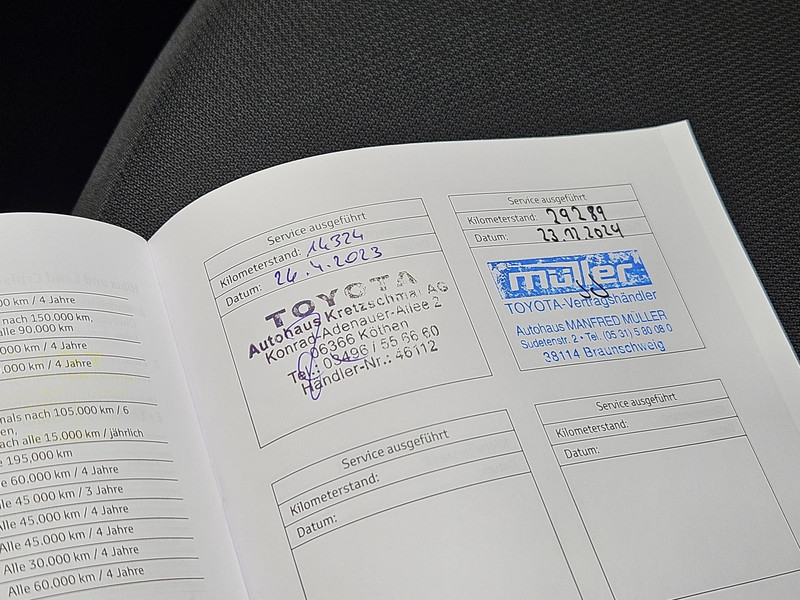 00 km / 4 Jahre
nach 150.000 km,
alle 90.000 km
000 km / 4 Jahre
.000 km / 4 Jahre
mals nach 105.000 km / 6
en,
ach alle 15.000 km / jährlich
e 195.000 km
e 60.000 km / 4 Jahre
lle 45 000 km / 3 Jahre
Alle 45.000 km / 4 Jahre
Alle 45.000 km / 4 Jahre
Alle 30.000 km / 4 Jahre
Alle 60.000 km / 4 Jahre
Service ausgeführt
Kilometerstand: 14324
Datum: 24.4.2023
TOYOTA
Autohaus Kretzschmar AG
Konrad-Adenauer-Allee 2
06366 Köthen
Tel.: 03496 / 55 66 60
Händler-Nr.: 46112
Service ausgeführt
Kilometerstand: 29289
Datum: 23.12.2024
müller
TOYOTA-Vertragshändler
Autohaus MANFRED MÜLLER
Sudetenstr. 2 • Tel. (05 31) 5 80 08 0
38114 Braunschweig
Service ausgeführt
Kilometerstand:
Datum:
Service ausgeführt
Kilometerstand:
Datum: